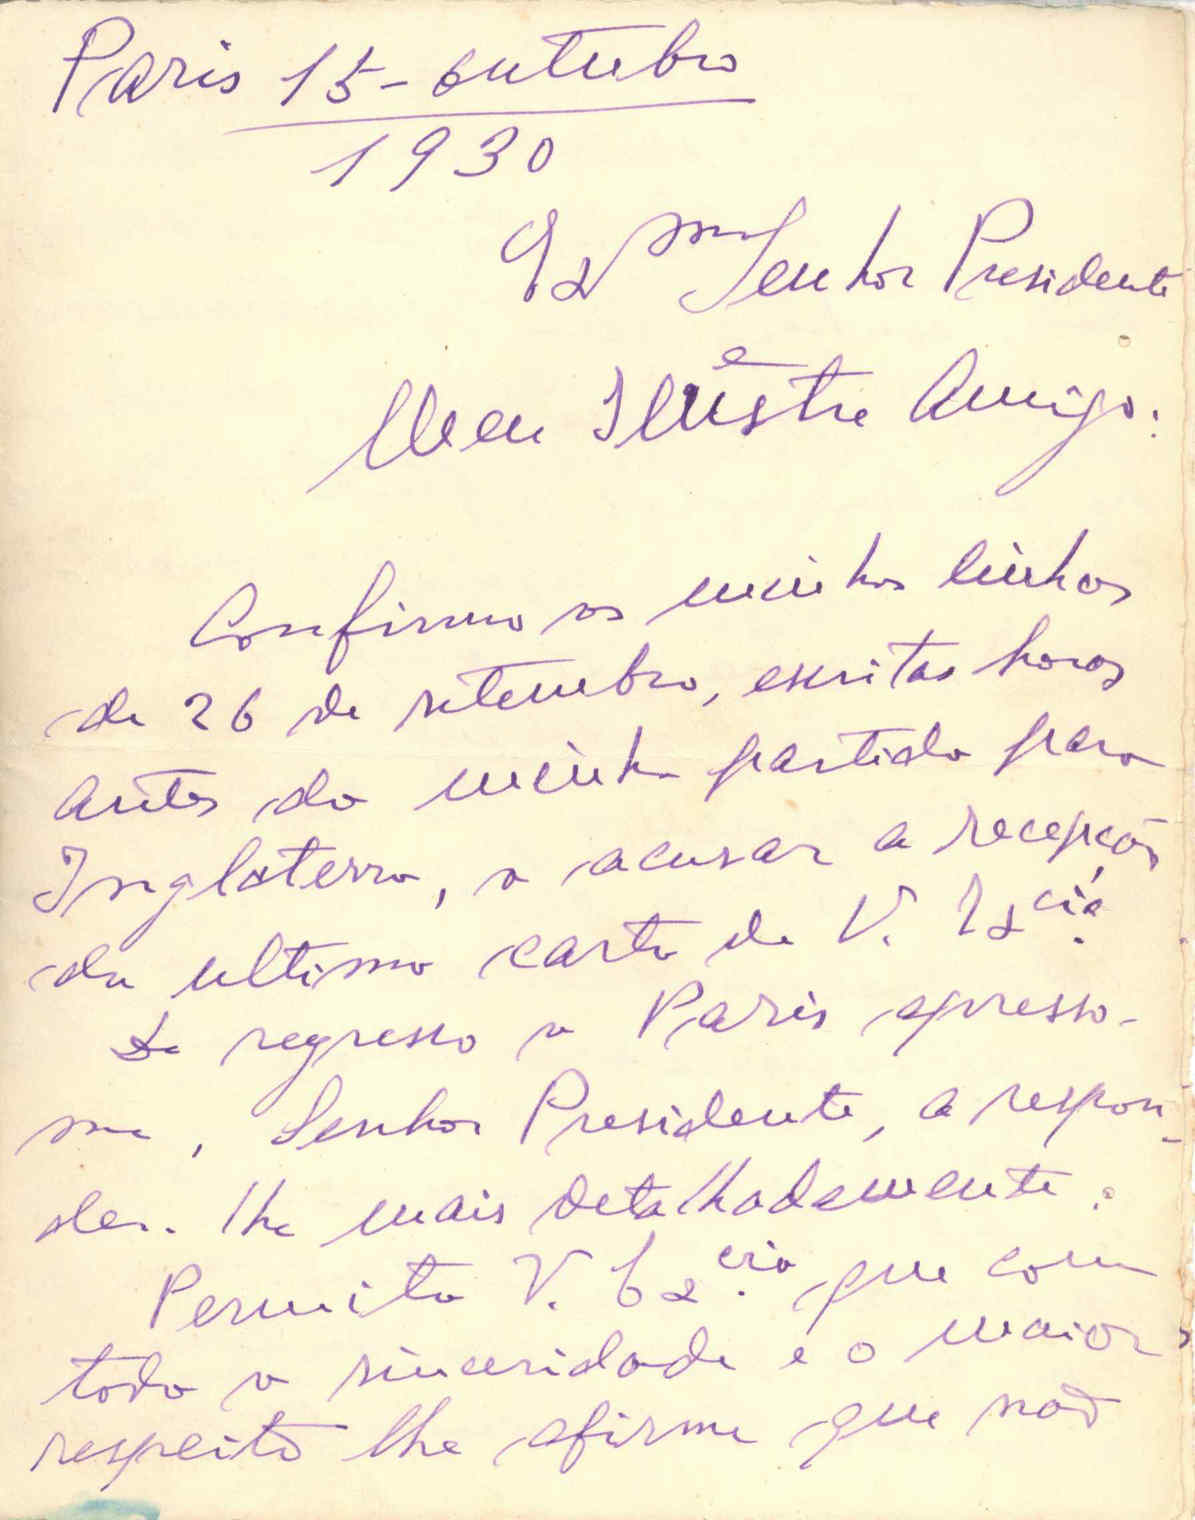 Paris 15-outubro
1930
Exmo Senhor Presidente
e
Meu Ilustre Amigo:
Confirmo as minhas linhas
de 26 de setembro, escritas horas
antes da minha partida para
Inglaterra, a acusar a recepção
da ultima carta de V. Excia.
De regresso a Paris apresso-
me, Senhor Presidente, a respon-
der-lhe mais detalhadamente:
Permita V. Excia. que com
toda a sinceridade e o maior
respeito lhe afirme que não